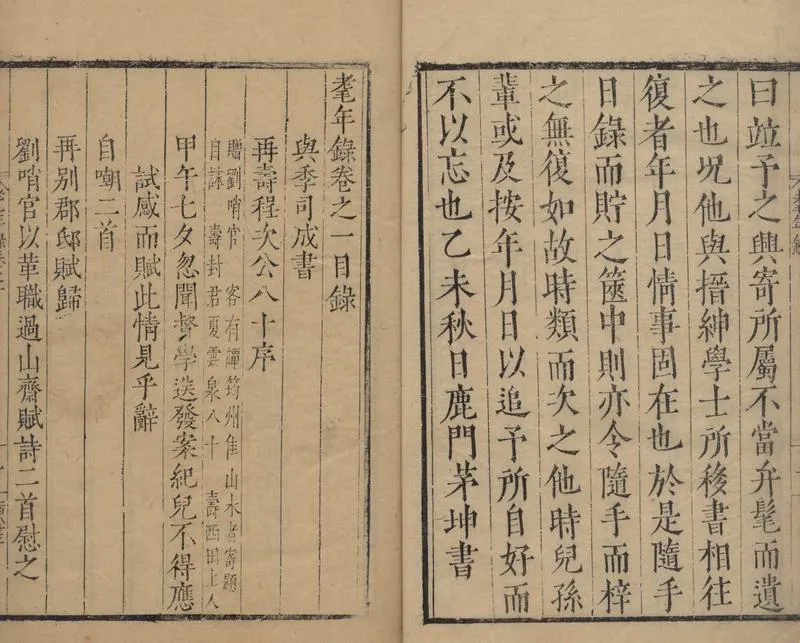 曰竝予之興寄所屬不當弁髦而遺
之也况他與搢紳學士所移書相往
復者年月日情事固在也於是隨手
日錄而貯之篋中則亦令隨手而梓
之無復如故時類而次之他時兒孫
輩或及按年月日以追予所自好而
不以忘也乙未秋日鹿門茅坤書
耄年錄卷之一目錄
與季司成書
再壽程次公八十序
贈劉哨官 客有譚筠州隹山水者寄題
自詠 壽封君夏雲泉八十 壽西田上人
甲午七夕忽聞督學送發案紀兒不得應
試感而賦此情見乎辭
自嘲二首
再別郡邸賦歸
劉哨官以革職過山齋賦詩二首慰之